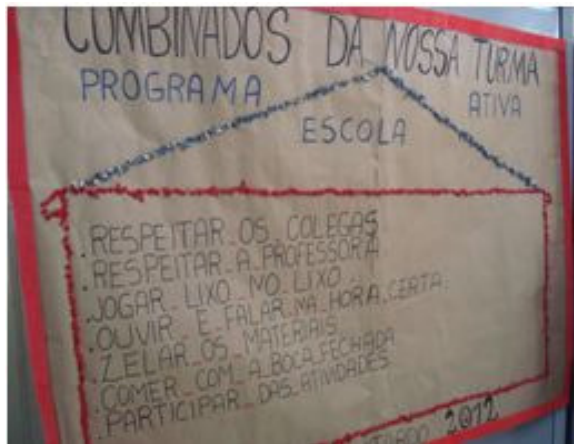 COMBINADOS DA NOSSA TURMA
PROGRAMA
ESCOLA
ATIVA
.RESPEITAR OS COLEGAS
.RESPEITAR A PROFESSORA
.JOGAR LIXO NO LIXO
.OUVIR E FALAR NA HORA CERTA
.ZELAR OS MATERIAIS
.COMER COM A BOCA FECHADA
.PARTICIPAR DAS ATIVIDADES
2012